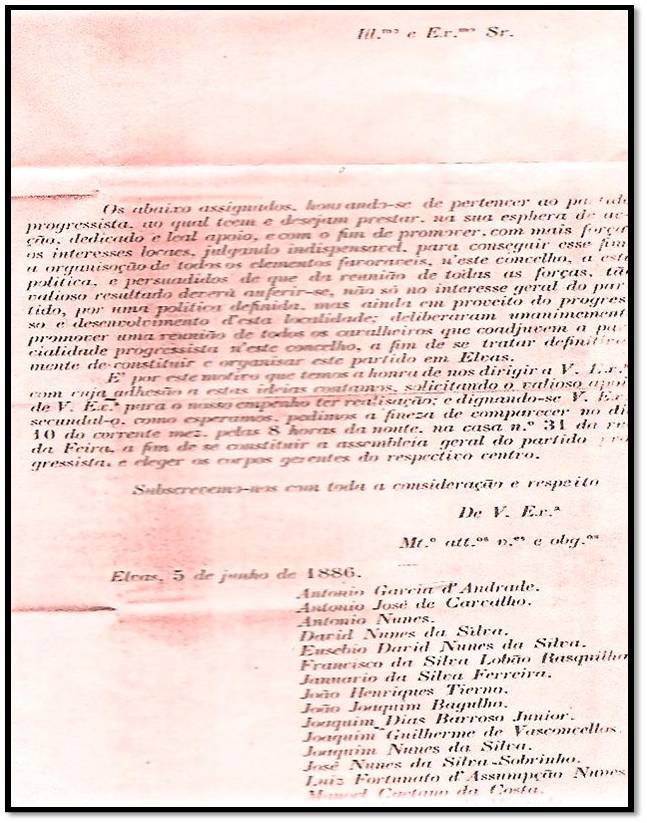 Ill.mo e Ex.mo Sr.
Os abaixo assignados, honrando-se de pertencer ao
progressista, ao qual teem e desejam prestar, na sua esphera de ac-
ção, dedicado e leal apoio, e com o fim de promover, com mais força
os interesses locaes, julgando indispensavel, para conseguir esse fim
a organisação de todos os elementos favoraveis, n'este concelho, a esta
politica, e persuadidos de que da reunião de todas as forças, tão
valioso resultado deverá auferir-se, não só no interesse geral do par
tido, por uma politica definida, mas ainda em proveito do progres
so e desenvolvimento d'esta localidade; deliberaram unanimement
promover uma reunião de todos os cavalheiros que coadjuvem a par
cialidade progressista n'este concelho, a fim de se tratar definitiva
mente de constituir e organisar este partido em Elvas.
E' por este motivo que temos a honra de nos dirigir a V. Ex.a
com cuja adhesão a estas ideias contamos, solicitando o valioso apoi
de V. Ex.a para o nosso empenho ter realisação; e dignando-se V. Ex.
secundal-o, como esperamos, pedimos a fineza de comparecer no di
10 do corrente mez, pelas 8 horas da noute, na casa n.o 31 da
da Feira, a fim de se constituir a assembleia geral do partido pro
gressista, e eleger os corpos gerentes do respectivo centro.
Subscrevemo-nos com toda a consideração e respeito
De V. Ex.a
Mt.o att.os v.es e obg.os
Elvas, 5 de junho de 1886.
Antonio Garcia d'Andrade.
Antonio José de Carvalho.
Antonio Nunes.
David Nunes da Silva.
Eusebio David Nunes da Silva.
Francisco da Silva Lobão Rasquilho
Januario da Silva Ferreira.
João Henriques Tierno.
João Joaquim Bagulho.
Joaquim Dias Barroso Junior.
Joaquim Guilherme de Vasconcellos.
Joaquim Nunes da Silva.
José Nunes da Silva Sobrinho.
Luiz Fortunato d'Assumpção Nunes
Manoel Caetano da Costa.